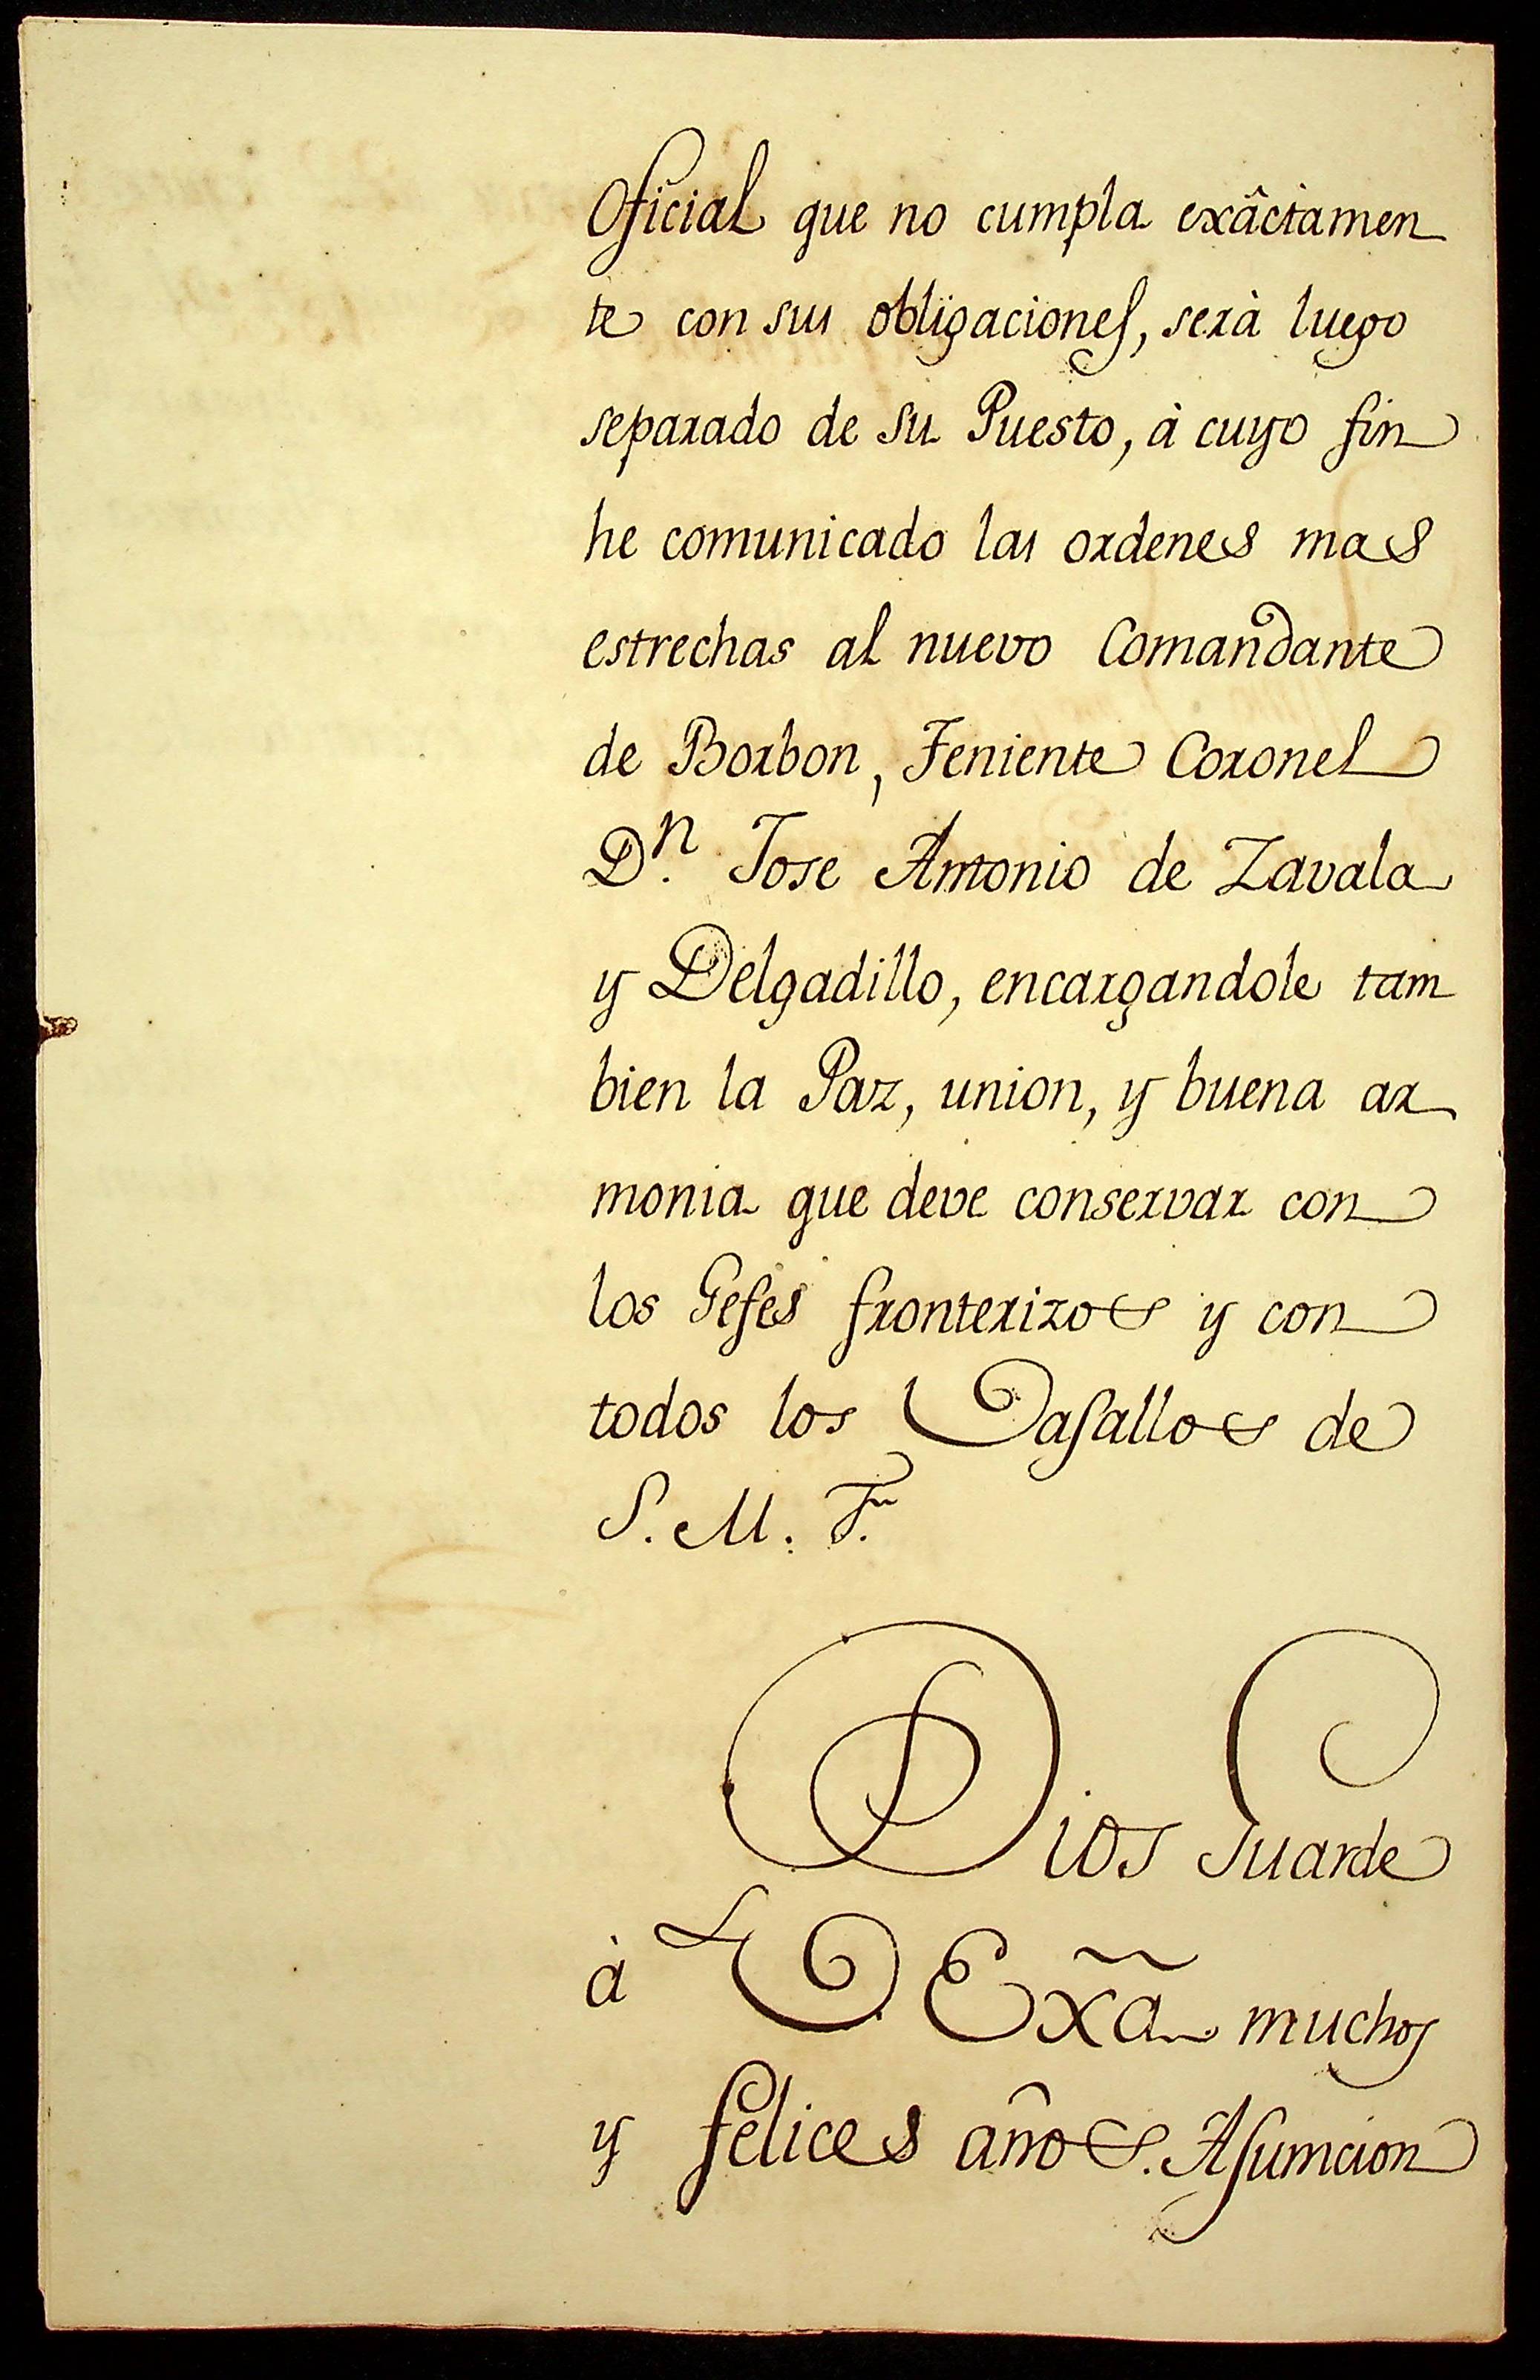 Oficial que no cumpla exâctamen
te con sus obligaciones, serà luego
separado de su Puesto, à cuyo fin
he comunicado las ordenes mas
estrechas al nuevo Comandante
de Borbon, Teniente Coronel
Dⁿ. Jose Antonio de Zavala
y Delgadillo, encargandole tam
bien la Paz, union, y buena ar
monia que deve conservar con
los Gefes fronterizos y con
todos los Vasallos de
S. M. F.
Dios Guarde
à V Exã muchos
y felices años. Asumcion